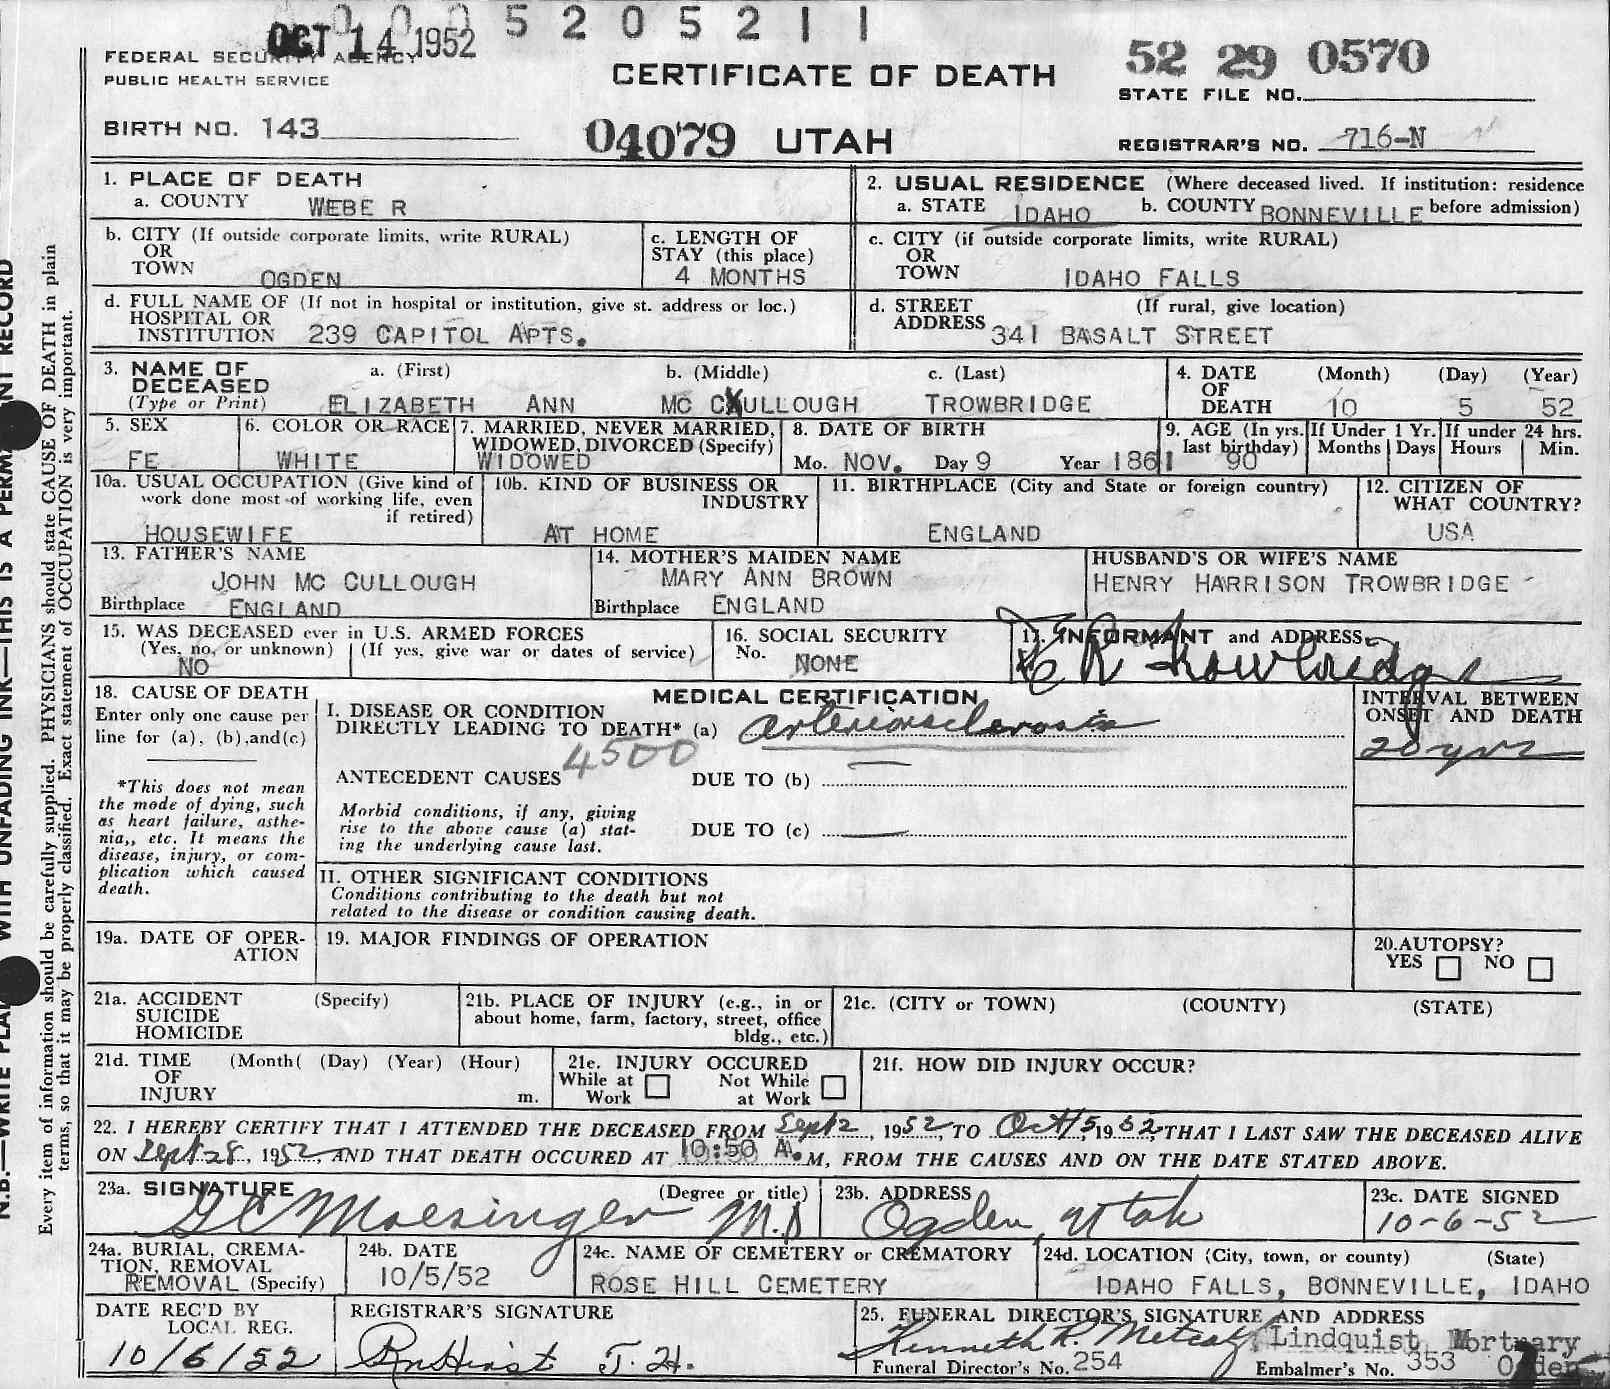 0 0 0 5 2 0 5 2 1 1
OCT 14 1952
FEDERAL SECURITY AGENCY
PUBLIC HEALTH SERVICE
CERTIFICATE OF DEATH
52 29 0570
STATE FILE NO.
BIRTH NO. 143
04079 UTAH
REGISTRAR'S NO. 716-N
1. PLACE OF DEATH
a. COUNTY WEBE R
2. USUAL RESIDENCE (Where deceased lived. If institution: residence before admission)
a. STATE IDAHO b. COUNTY BONNEVILLE
b. CITY (If outside corporate limits, write RURAL)
OR
TOWN OGDEN
c. LENGTH OF
STAY (this place)
4 MONTHS
c. CITY (if outside corporate limits, write RURAL)
OR
TOWN IDAHO FALLS
d. FULL NAME OF (If not in hospital or institution, give st. address or loc.)
HOSPITAL OR
INSTITUTION 239 CAPITOL APTS.
d. STREET (If rural, give location)
ADDRESS 341 BASALT STREET
3. NAME OF DECEASED
(Type or Print)
a. (First) b. (Middle) c. (Last)
ELIZABETH ANN MC CULLOUGH TROWBRIDGE
4. DATE OF DEATH (Month) (Day) (Year)
10 5 52
5. SEX
FE
6. COLOR OR RACE
WHITE
7. MARRIED, NEVER MARRIED,
WIDOWED, DIVORCED (Specify)
WIDOWED
8. DATE OF BIRTH
Mo. NOV. Day 9 Year 1861
9. AGE (In yrs.
last birthday)
90
If Under 1 Yr.
Months Days
If under 24 hrs.
Hours Min.
10a. USUAL OCCUPATION (Give kind of
work done most of working life, even
if retired)
HOUSEWIFE
10b. KIND OF BUSINESS OR
INDUSTRY
AT HOME
11. BIRTHPLACE (City and State or foreign country)
ENGLAND
12. CITIZEN OF
WHAT COUNTRY?
USA
13. FATHER'S NAME
JOHN MC CULLOUGH
Birthplace ENGLAND
14. MOTHER'S MAIDEN NAME
MARY ANN BROWN
Birthplace ENGLAND
HUSBAND'S OR WIFE'S NAME
HENRY HARRISON TROWBRIDGE
15. WAS DECEASED ever in U.S. ARMED FORCES
(Yes, no, or unknown) (If yes, give war or dates of service)
NO
16. SOCIAL SECURITY
No. NONE
17. INFORMANT and ADDRESS
R Trowbridge
18. CAUSE OF DEATH
Enter only one cause per
line for (a), (b), and (c)
*This does not mean
the mode of dying, such
as heart failure, asthe-
nia,, etc. It means the
disease, injury, or com-
plication which caused
death.
MEDICAL CERTIFICATION
I. DISEASE OR CONDITION
DIRECTLY LEADING TO DEATH* (a) Arteriosclerosis
4500
ANTECEDENT CAUSES DUE TO (b)
Morbid conditions, if any, giving
rise to the above cause (a) stat-
ing the underlying cause last.
DUE TO (c)
INTERVAL BETWEEN
ONSET AND DEATH
20 yrs
II. OTHER SIGNIFICANT CONDITIONS
Conditions contributing to the death but not
related to the disease or condition causing death.
19a. DATE OF OPER-
ATION
19. MAJOR FINDINGS OF OPERATION
20. AUTOPSY?
YES NO
21a. ACCIDENT (Specify)
SUICIDE
HOMICIDE
21b. PLACE OF INJURY (e.g., in or
about home, farm, factory, street, office
bldg., etc.)
21c. (CITY or TOWN) (COUNTY) (STATE)
21d. TIME (Month( (Day) (Year) (Hour)
OF
INJURY m.
21e. INJURY OCCURED
While at Work Not While at Work
21f. HOW DID INJURY OCCUR?
22. I HEREBY CERTIFY THAT I ATTENDED THE DECEASED FROM Sept 2, 1952, TO Oct 5, 1952, THAT I LAST SAW THE DECEASED ALIVE
ON Sept 28, 1952, AND THAT DEATH OCCURED AT 10:50 A.M, FROM THE CAUSES AND ON THE DATE STATED ABOVE.
23a. SIGNATURE (Degree or title)
G C Moesinger M.D
23b. ADDRESS
Ogden, Utah
23c. DATE SIGNED
10-6-52
24a. BURIAL, CREMA-
TION, REMOVAL
REMOVAL (Specify)
24b. DATE
10/5/52
24c. NAME OF CEMETERY or CREMATORY
ROSE HILL CEMETERY
24d. LOCATION (City, town, or county) (State)
IDAHO FALLS, BONNEVILLE, IDAHO
DATE REC'D BY
LOCAL REG.
10/6/52
REGISTRAR'S SIGNATURE
J. H.
25. FUNERAL DIRECTOR'S SIGNATURE AND ADDRESS
Kenneth R. Metcalf Lindquist Mortuary
Funeral Director's No. 254 Embalmer's No. 353 Ogden
N.B.—WRITE PLAI WITH UNFADING INK—THIS IS A PERMA NT RECORD
Every item of information should be carefully supplied. PHYSICIANS should state CAUSE OF DEATH in plain
terms, so that it may be properly classified. Exact statement of OCCUPATION is very important.